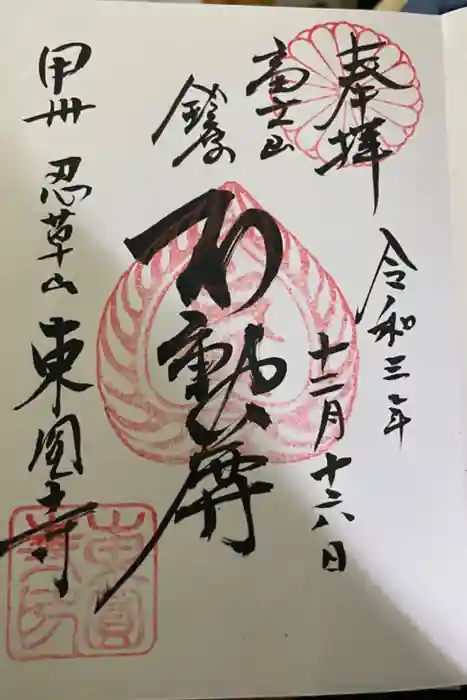 奉拝
令和三年
十二月十六日
富士山
鎮爆
不動尊
甲州 忍草山 東圓寺